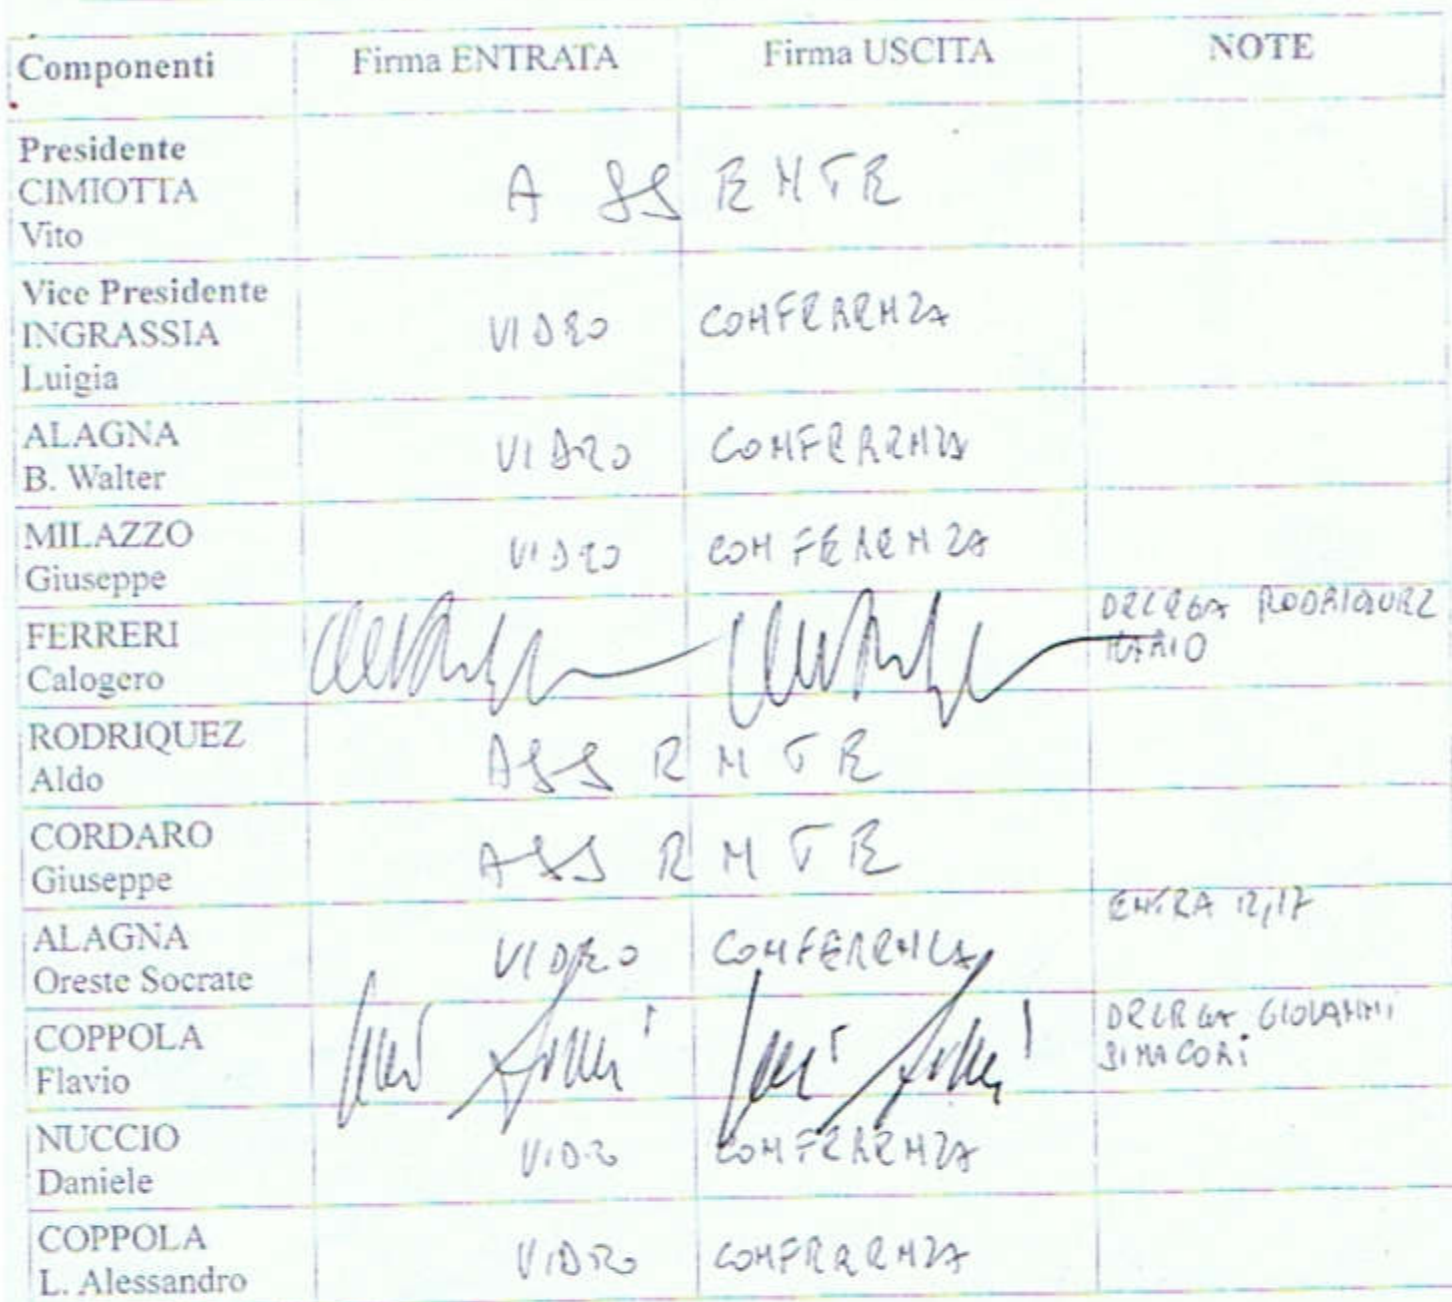 Componenti Firma ENTRATA Firma USCITA NOTE
Presidente
CIMIOTTA
Vito
ASSENTE
Vice Presidente
INGRASSIA
Luigia
VIDEO CONFERENZA
ALAGNA
B. Walter
VIDEO CONFERENZA
MILAZZO
Giuseppe
VIDEO CONFERENZA
FERRERI
Calogero
DELEGA RODRIQUEZ
MARIO
RODRIQUEZ
Aldo
ASSENTE
CORDARO
Giuseppe
ASSENTE
ALAGNA
Oreste Socrate
VIDEO CONFERENZA
ENTRA 12,17
COPPOLA
Flavio
DELEGA GIOVANNI
SINACORI
NUCCIO
Daniele
VIDEO CONFERENZA
COPPOLA
L. Alessandro
VIDEO CONFERENZA